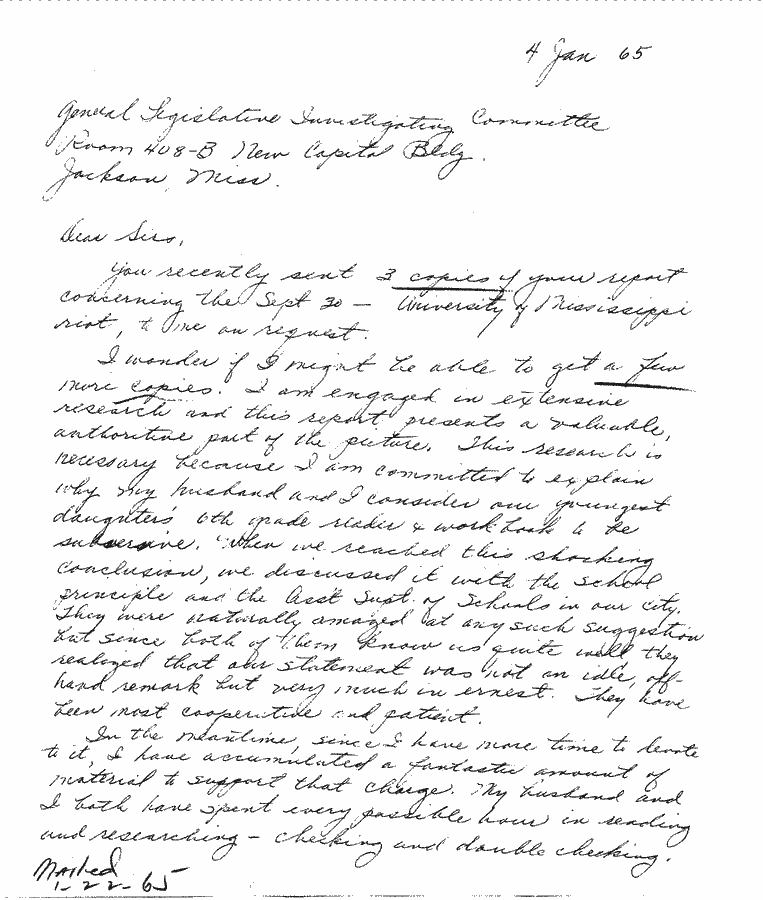 4 Jan 65
General Legislative Investigating Committee
Room 408-B New Capitol Bldg.
Jackson, Miss.
Dear Sirs,
You recently sent 3 copies of your report
concerning the Sept 30 — University of Mississippi
riot, to me on request.
I wonder if I might be able to get a few
more copies. I am engaged in extensive
research and this report presents a valuable,
authoritive part of the picture. This research is
necessary because I am committed to explain
why my husband and I consider our youngest
daughters' 6th grade reader & work book to be
subversive. When we reached this shocking
conclusion, we discussed it with the school
principle and the Ass't Supt. of Schools in our city.
They were naturally amazed at any such suggestion
but since both of them know us quite well they
realized that our statement was not an idle, off-
hand remark but very much in ernest. They have
been most cooperative and patient.
In the meantime, since I have more time to devote
to it, I have accumulated a fantastic amount of
material to support that charge. My husband and
I both have spent every possible hour in reading
and researching — checking and double checking.
Mailed
1-22-65